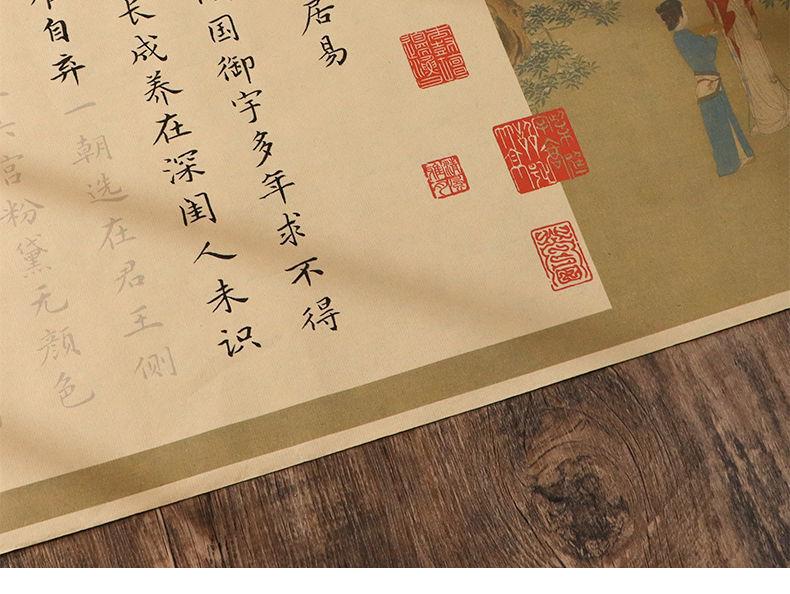 居易
国御宇多年求不得
长成养在深闺人未识
自弃
一朝选在君王侧
六宫粉黛无颜色